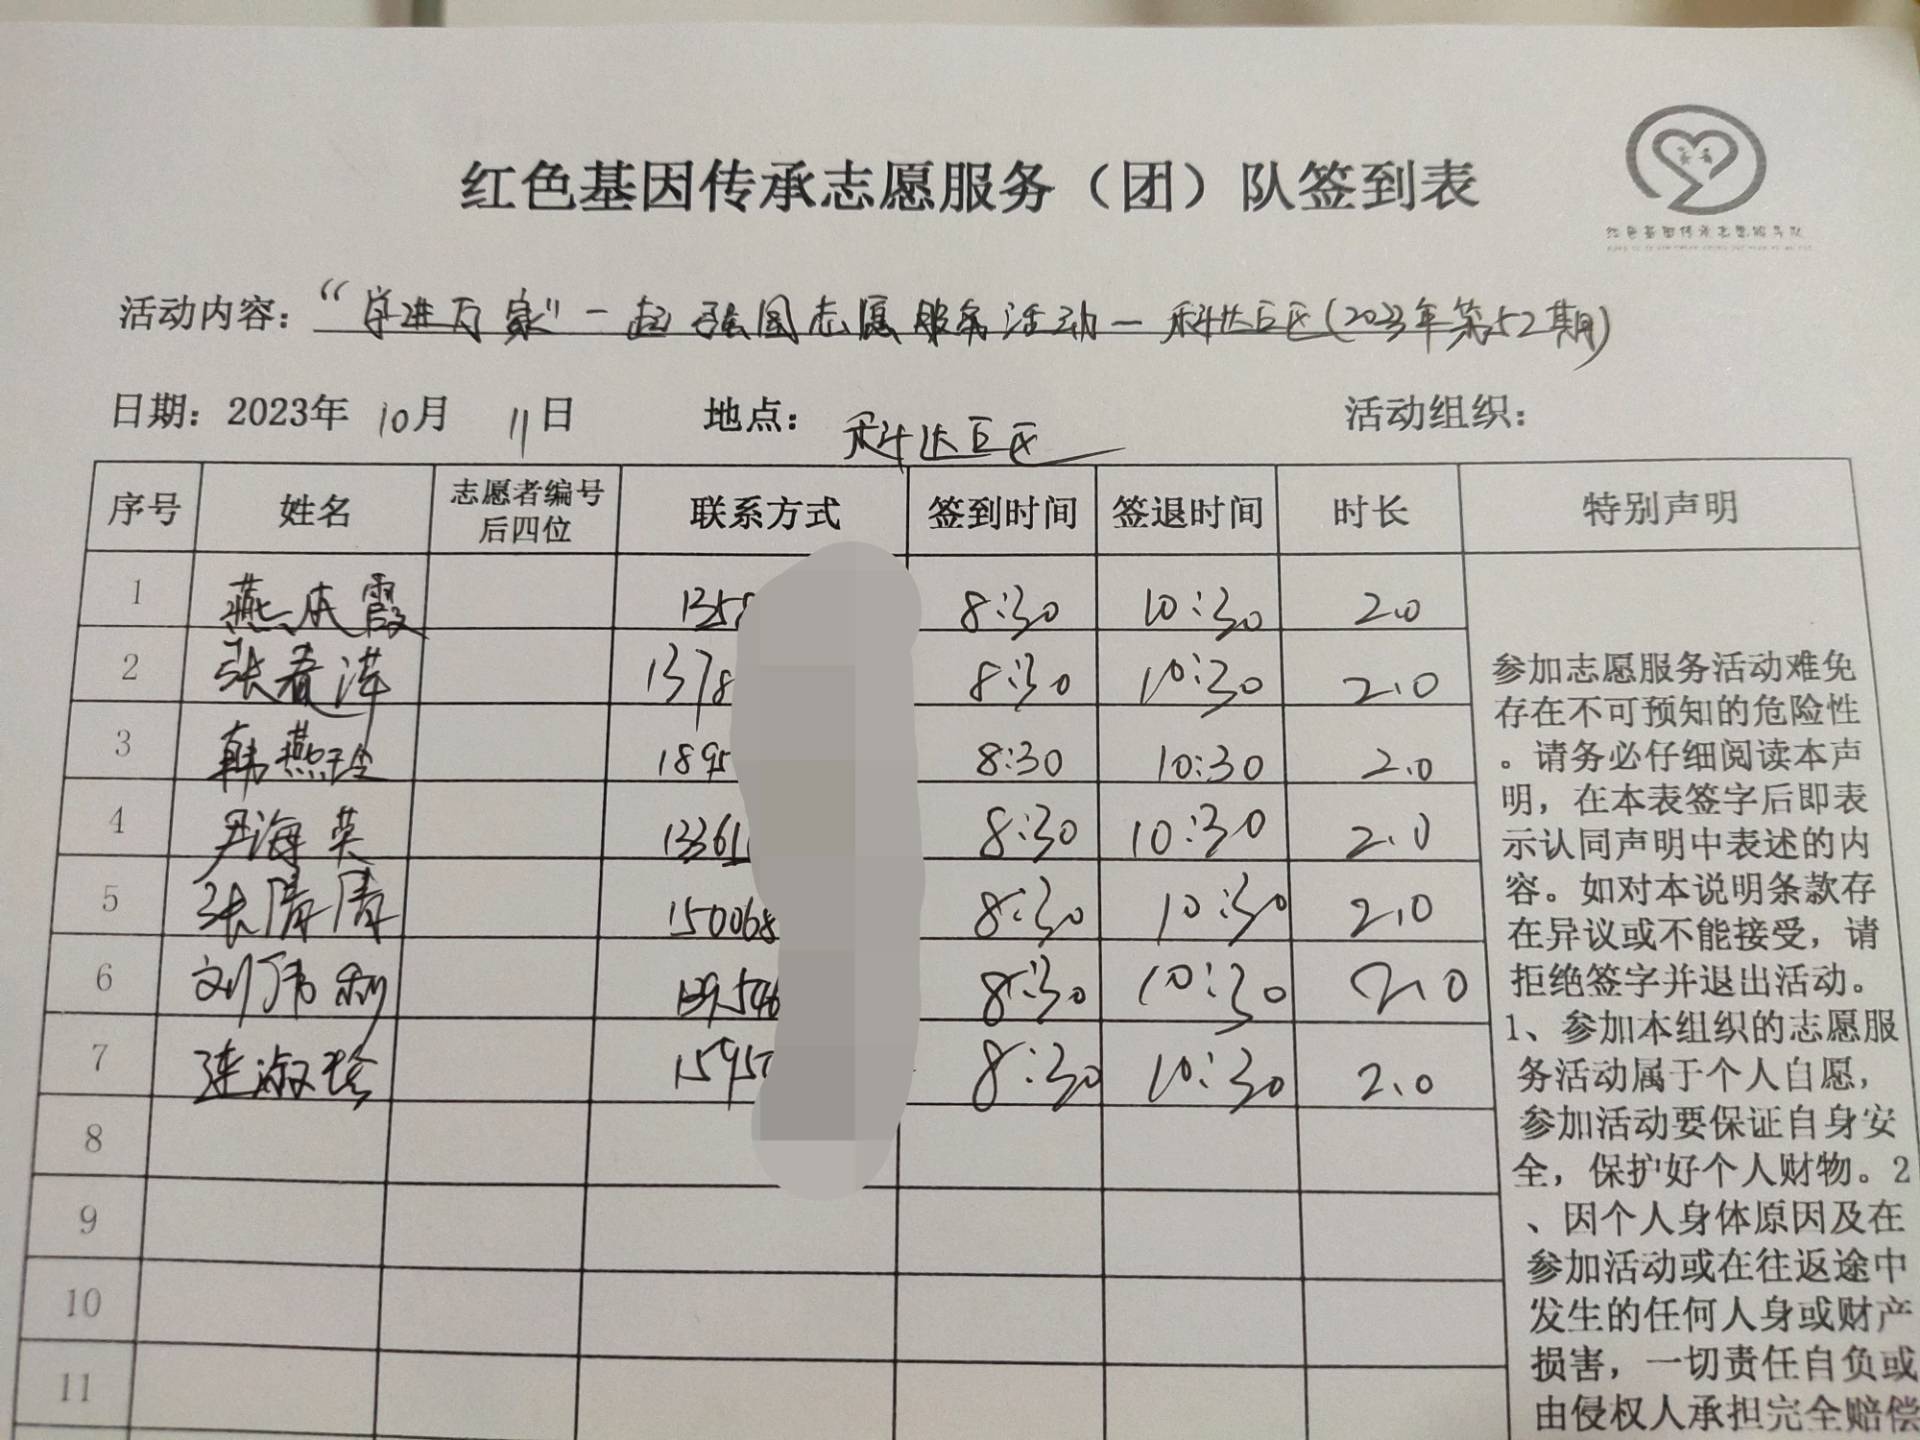 红色基因传承志愿服务（团）队签到表
红色基因传承志愿服务队
活动内容：“学进万家”一起强国志愿服务活动—科达巨区(2023年第52期)
日期：2023年 10月 11日 地点：科达巨区 活动组织：
序号 姓名 志愿者编号后四位 联系方式 签到时间 签退时间 时长 特别声明
1 燕风霞 1358 8:30 10:30 2.0
2 张春萍 1378 8:30 10:30 2.0
3 韩燕玲 1895 8:30 10:30 2.0
4 尹海英 13361 8:30 10:30 2.0
5 张清清 150068 8:30 10:30 2.0
6 刘伟利 139546 8:30 10:30 2.0
7 连淑珍 1595 8:30 10:30 2.0
8
9
10
11
参加志愿服务活动难免
存在不可预知的危险性
。请务必仔细阅读本声
明，在本表签字后即表
示认同声明中表述的内
容。如对本说明条款存
在异议或不能接受，请
拒绝签字并退出活动。
1、参加本组织的志愿服
务活动属于个人自愿，
参加活动要保证自身安
全，保护好个人财物。2
、因个人身体原因及在
参加活动或在往返途中
发生的任何人身或财产
损害，一切责任自负或
由侵权人承担完全赔偿